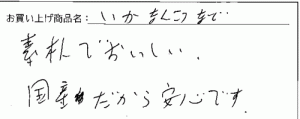 お買い上げ商品名： いか なんこつ など
素朴でおいしい。
国産だから安心です。